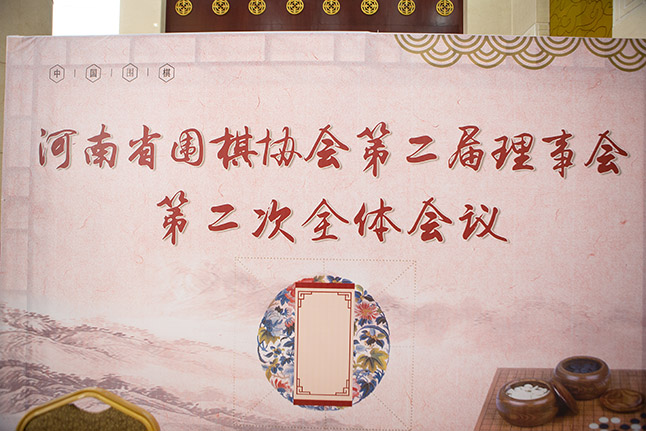 中国围棋
河南省围棋协会第二届理事会
第二次全体会议